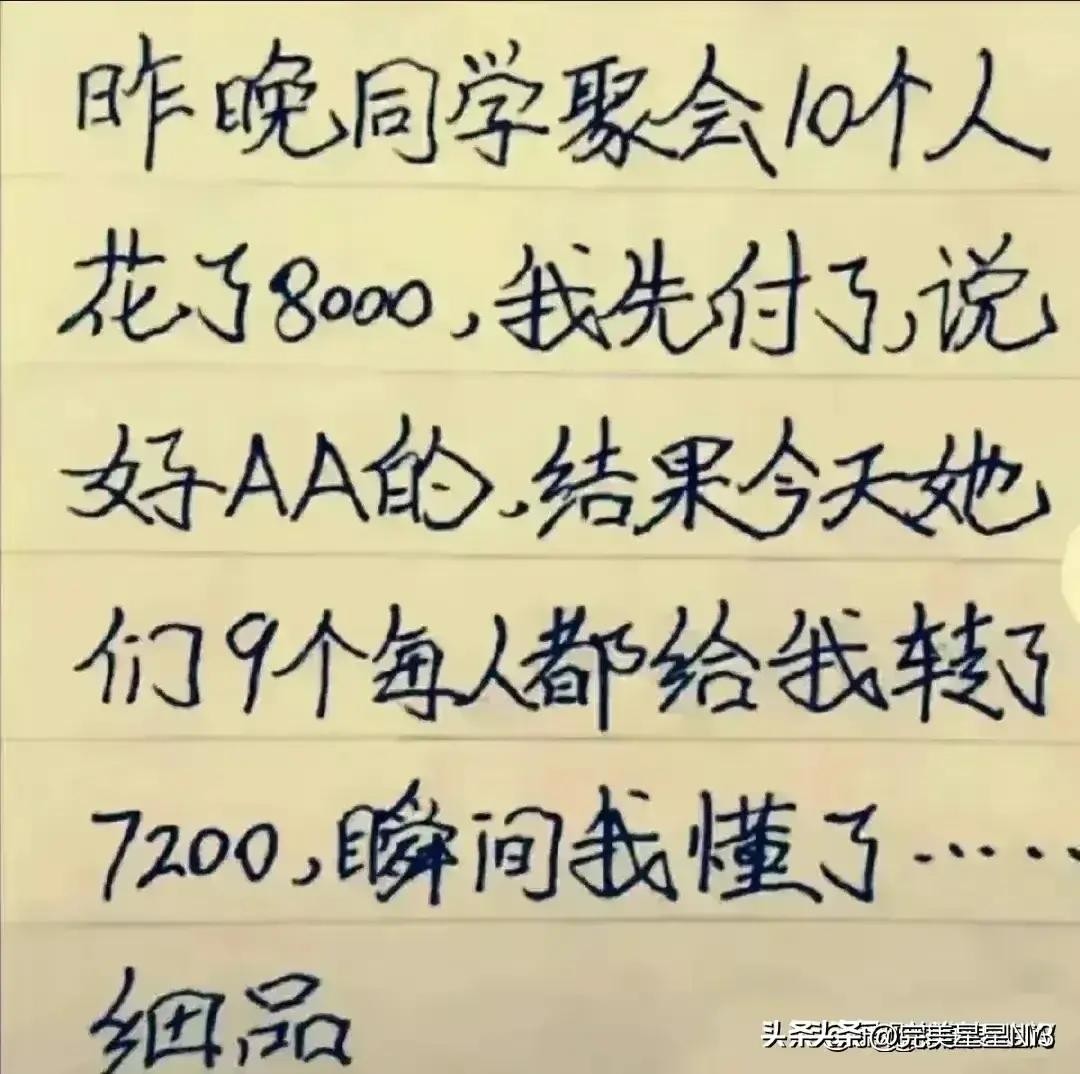 昨晚同学聚会10个人
花了8000,我先付了,说
好AA的,结果今天她
们9个每人都给我转了
7200,瞬间我懂了……
细品
头条 @完美星星